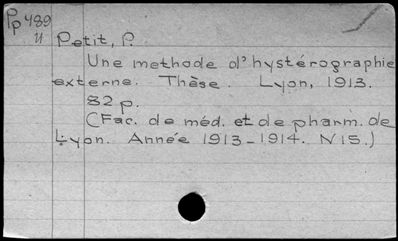 Pp 489
u
Petit, P.
Une methode d'hystérographie
externe. Thèse. Lyon, 1913.
82 p.
(Fac. de méd. et de pharm. de
Lyon. Année 1913-1914. N 15.)